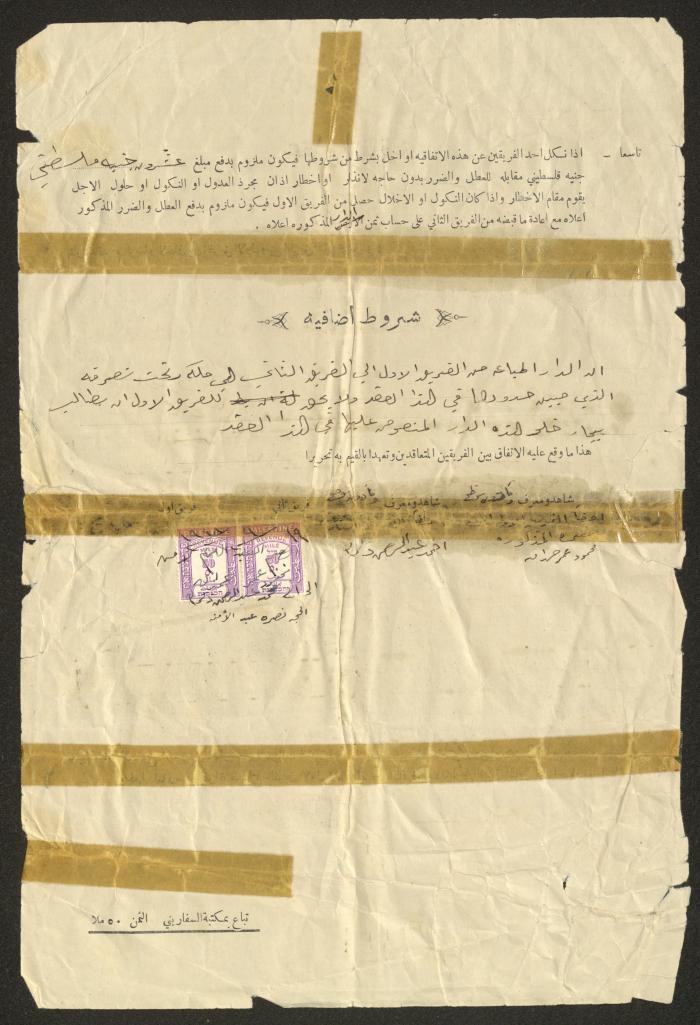 تاسعا – اذا نكل احد الفريقين عن هذه الاتفاقيه او اخل بشرط من شروطها فيكون ملزوم بدفع مبلغ عشرون جنيه فلسطيني
جنيه فلسطيني مقابله للعطل والضرر بدون حاجه لانذار او اخطار اذ ان مجرد العدول او النكول او حلول الاجل
يقوم مقام الاخطار واذا كان النكول او الاخلال حصل من الفريق الاول فيكون ملزوم بدفع العطل والضرر المذكور
اعلاه مع اعادة ما قبضه من الفريق الثاني على حساب ثمن الدار المذكوره اعلاه .
شروط اضافيه
ان الدار المباعه من الفريق الاول الى الفريق الثاني هي ملكه وتحت تصرفه
الذي مبين حدودها في هذا العقد ولا يحق للفريق الاول ان يطالب
بيجار خلو هذه الدار المنصوص عليها في هذا العقد
هذا ما وقع عليه الاتفاق بين الفريقين المتعاقدين وتعهدا بالقيام به تحريرا
شاهد ومعرف شاهد ومعرف فريق ثاني فريق اول
نصره المذكوره
محمود عمر احمد عبد الرحمن
الحجه نصره عبد
تباع بمكتبة السفاريني الثمن ٥٠ ملا